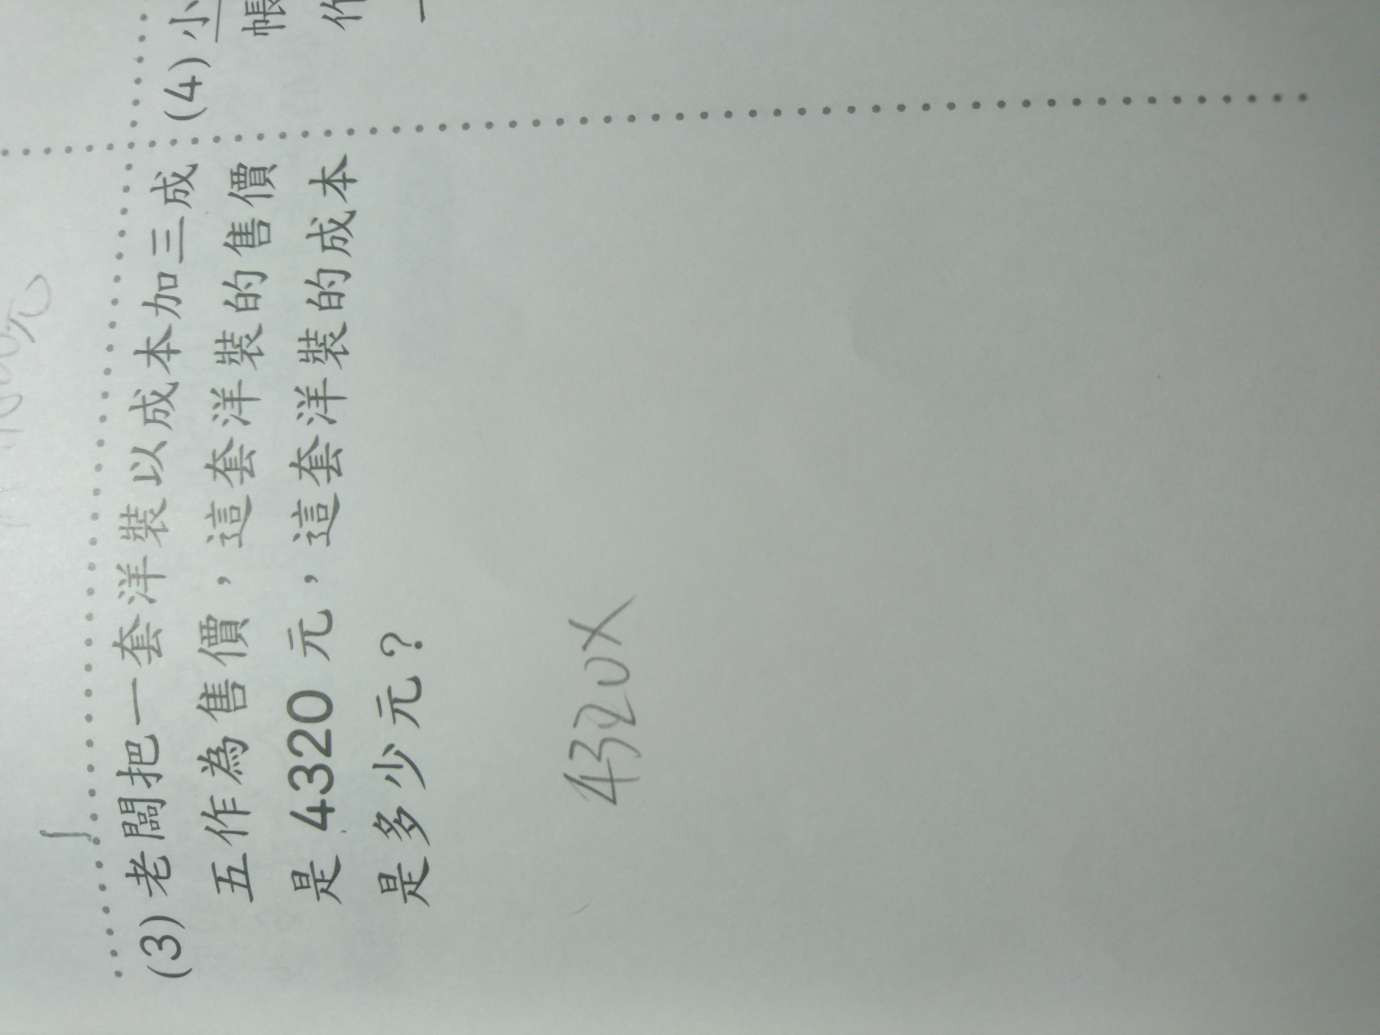 (3) 老闆把一套洋裝以成本加三成
五作為售價，這套洋裝的售價
是 4320 元，這套洋裝的成本
是多少元？
4320×
(4) 小
帳
作